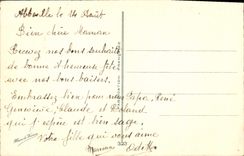 Abbeville le 14 Août
Bien chère Maman
Recevez nos bons souhaits
de bonne & heureuse fête
avec nos bons baisers.
Embrassez bien pour nous Papa, René
Geneviève, Claude et Roland
qui j'espère est bien sage.
Votre fille qui vous aime
Odette